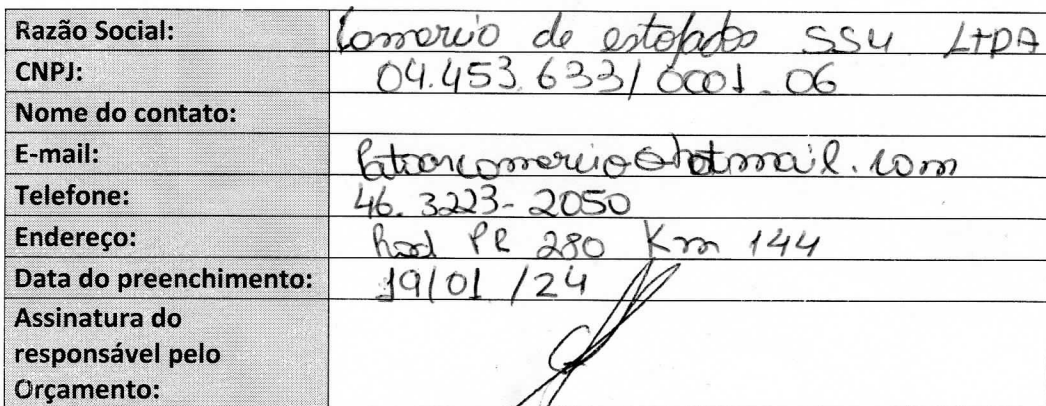 Razão Social: Comercio de estofados SSU LTDA
CNPJ: 04.453.633/0001-06
Nome do contato:
E-mail: @hotmail.com
Telefone: 46. 3223-2050
Endereço: Rod PR 280 Km 144
Data do preenchimento: 19/01/24
Assinatura do
responsável pelo
Orçamento: